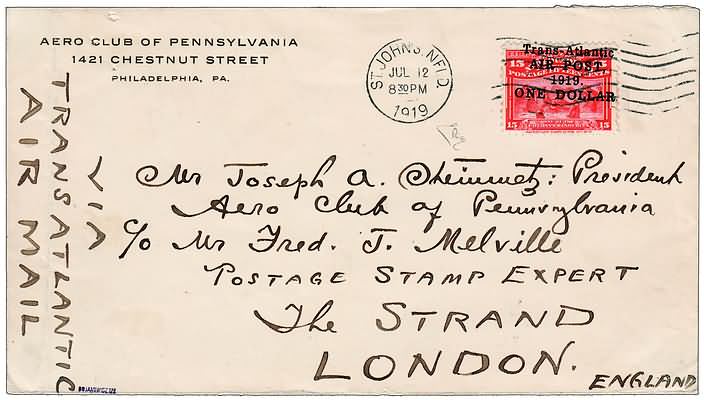 AERO CLUB OF PENNSYLVANIA
1421 CHESTNUT STREET
PHILADELPHIA, PA.
ST. JOHN'S. NFLD
JUL 12
8 30 PM
1919
Trans-Atlantic
AIR POST
1919
ONE DOLLAR
15 15
15 15
VIA
TRANSATLANTIC
AIR MAIL
Mr Joseph A. Steinmetz: President
Aero Club of Pennsylvania
c/o Mr Fred. J. Melville
POSTAGE STAMP EXPERT
The STRAND
LONDON.
ENGLAND